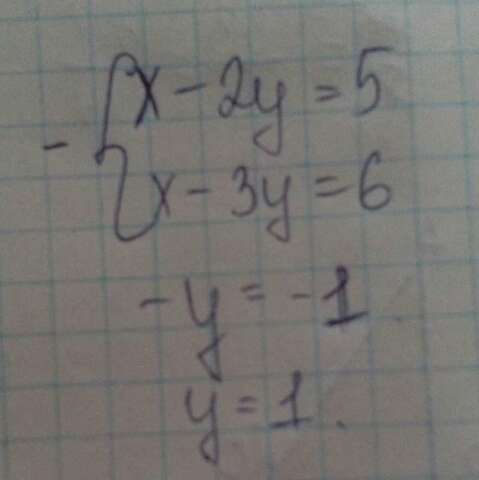 - { x - 2y = 5
x - 3y = 6
-y = -1
y = 1.